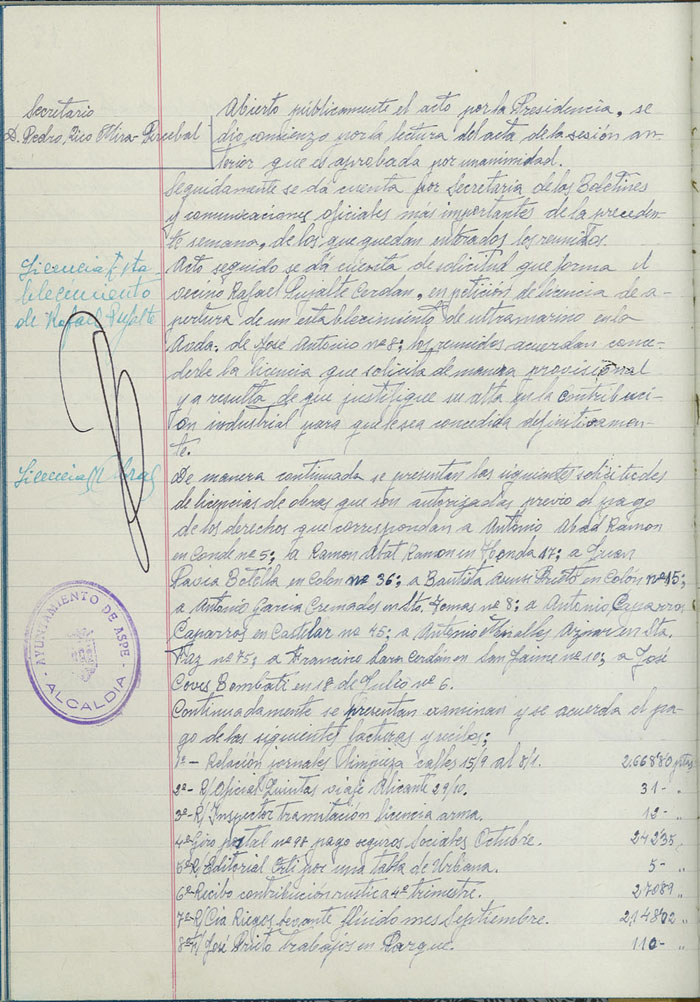 Secretario
D. Pedro, Rico Mira-Percebal
Abierto públicamente el acto por la Presidencia, se
dio comienzo por la lectura del acta de la sesión an-
terior que es aprobada por unanimidad.
Seguidamente se da cuenta por Secretaria de los Boletines
y comunicaciones oficiales más importantes de la preceden-
te semana, de los que quedan enterados los reunidos.
Licencia
blecimiento
de Rafael Pujalte
Acto seguido se da cuenta de solicitud que forma el
vecino Rafael Pujalte Cerdan, en petición de licencia de a-
pertura de un establecimiento de ultramarino en la
Avda. de José Antonio nº 8; los reunidos acuerdan conce-
derle la licencia que solicita de manera provisional
y a resulta de que justifique su alta en la contribuci-
ón industrial para que le sea concedida definitivamen-
te.
Licencias
De manera continuada se presentan las siguientes solicitudes
de licencias de obras que son autorizadas previo el pago
de los derechos que correspondan a Antonio Abad Ramon
en Conde nº 5; a Ramon Abat Ramon en Honda 17; a Juan
Pavia Botella en Colon nº 36; a Bautista Prieto en Colón nº 15;
a Antonio Garcia Cremades en Sto. Tomas nº 8; a Antonio Caparros
Caparros en Castelar nº 45; a Antonio Miralles Aznar en Sta.
Faz nº 75; a Francisco Cerdán en San Jaime nº 10; a José
Coves Bombati en 18 de Julio nº 6.
AYUNTAMIENTO DE ASPE
ALCALDIA
Continuadamente se presentan examinan y se acuerda el pa-
go de las siguientes facturas y recibos;
1º- Relación jornales limpieza calles 15/9 al 8/1. 2.668'80 ptas
2º- R/ Oficial Quintas viaje Alicante 29/10. 31- "
3º- R/ Inspector tramitación licencia arma. 12- "
4º Giro postal nº 98 pago seguros Sociales Octubre. 242'35 "
5º R/ Editorial por una tabla de Urbana. 5- "
6º Recibo contribución rustica 4º trimestre. 270'89 "
7º R/ Cia Riegos Levante fluido mes Septiembre. 2,148'02 "
8º R/ José Prieto trabajos en Parque. 110- "